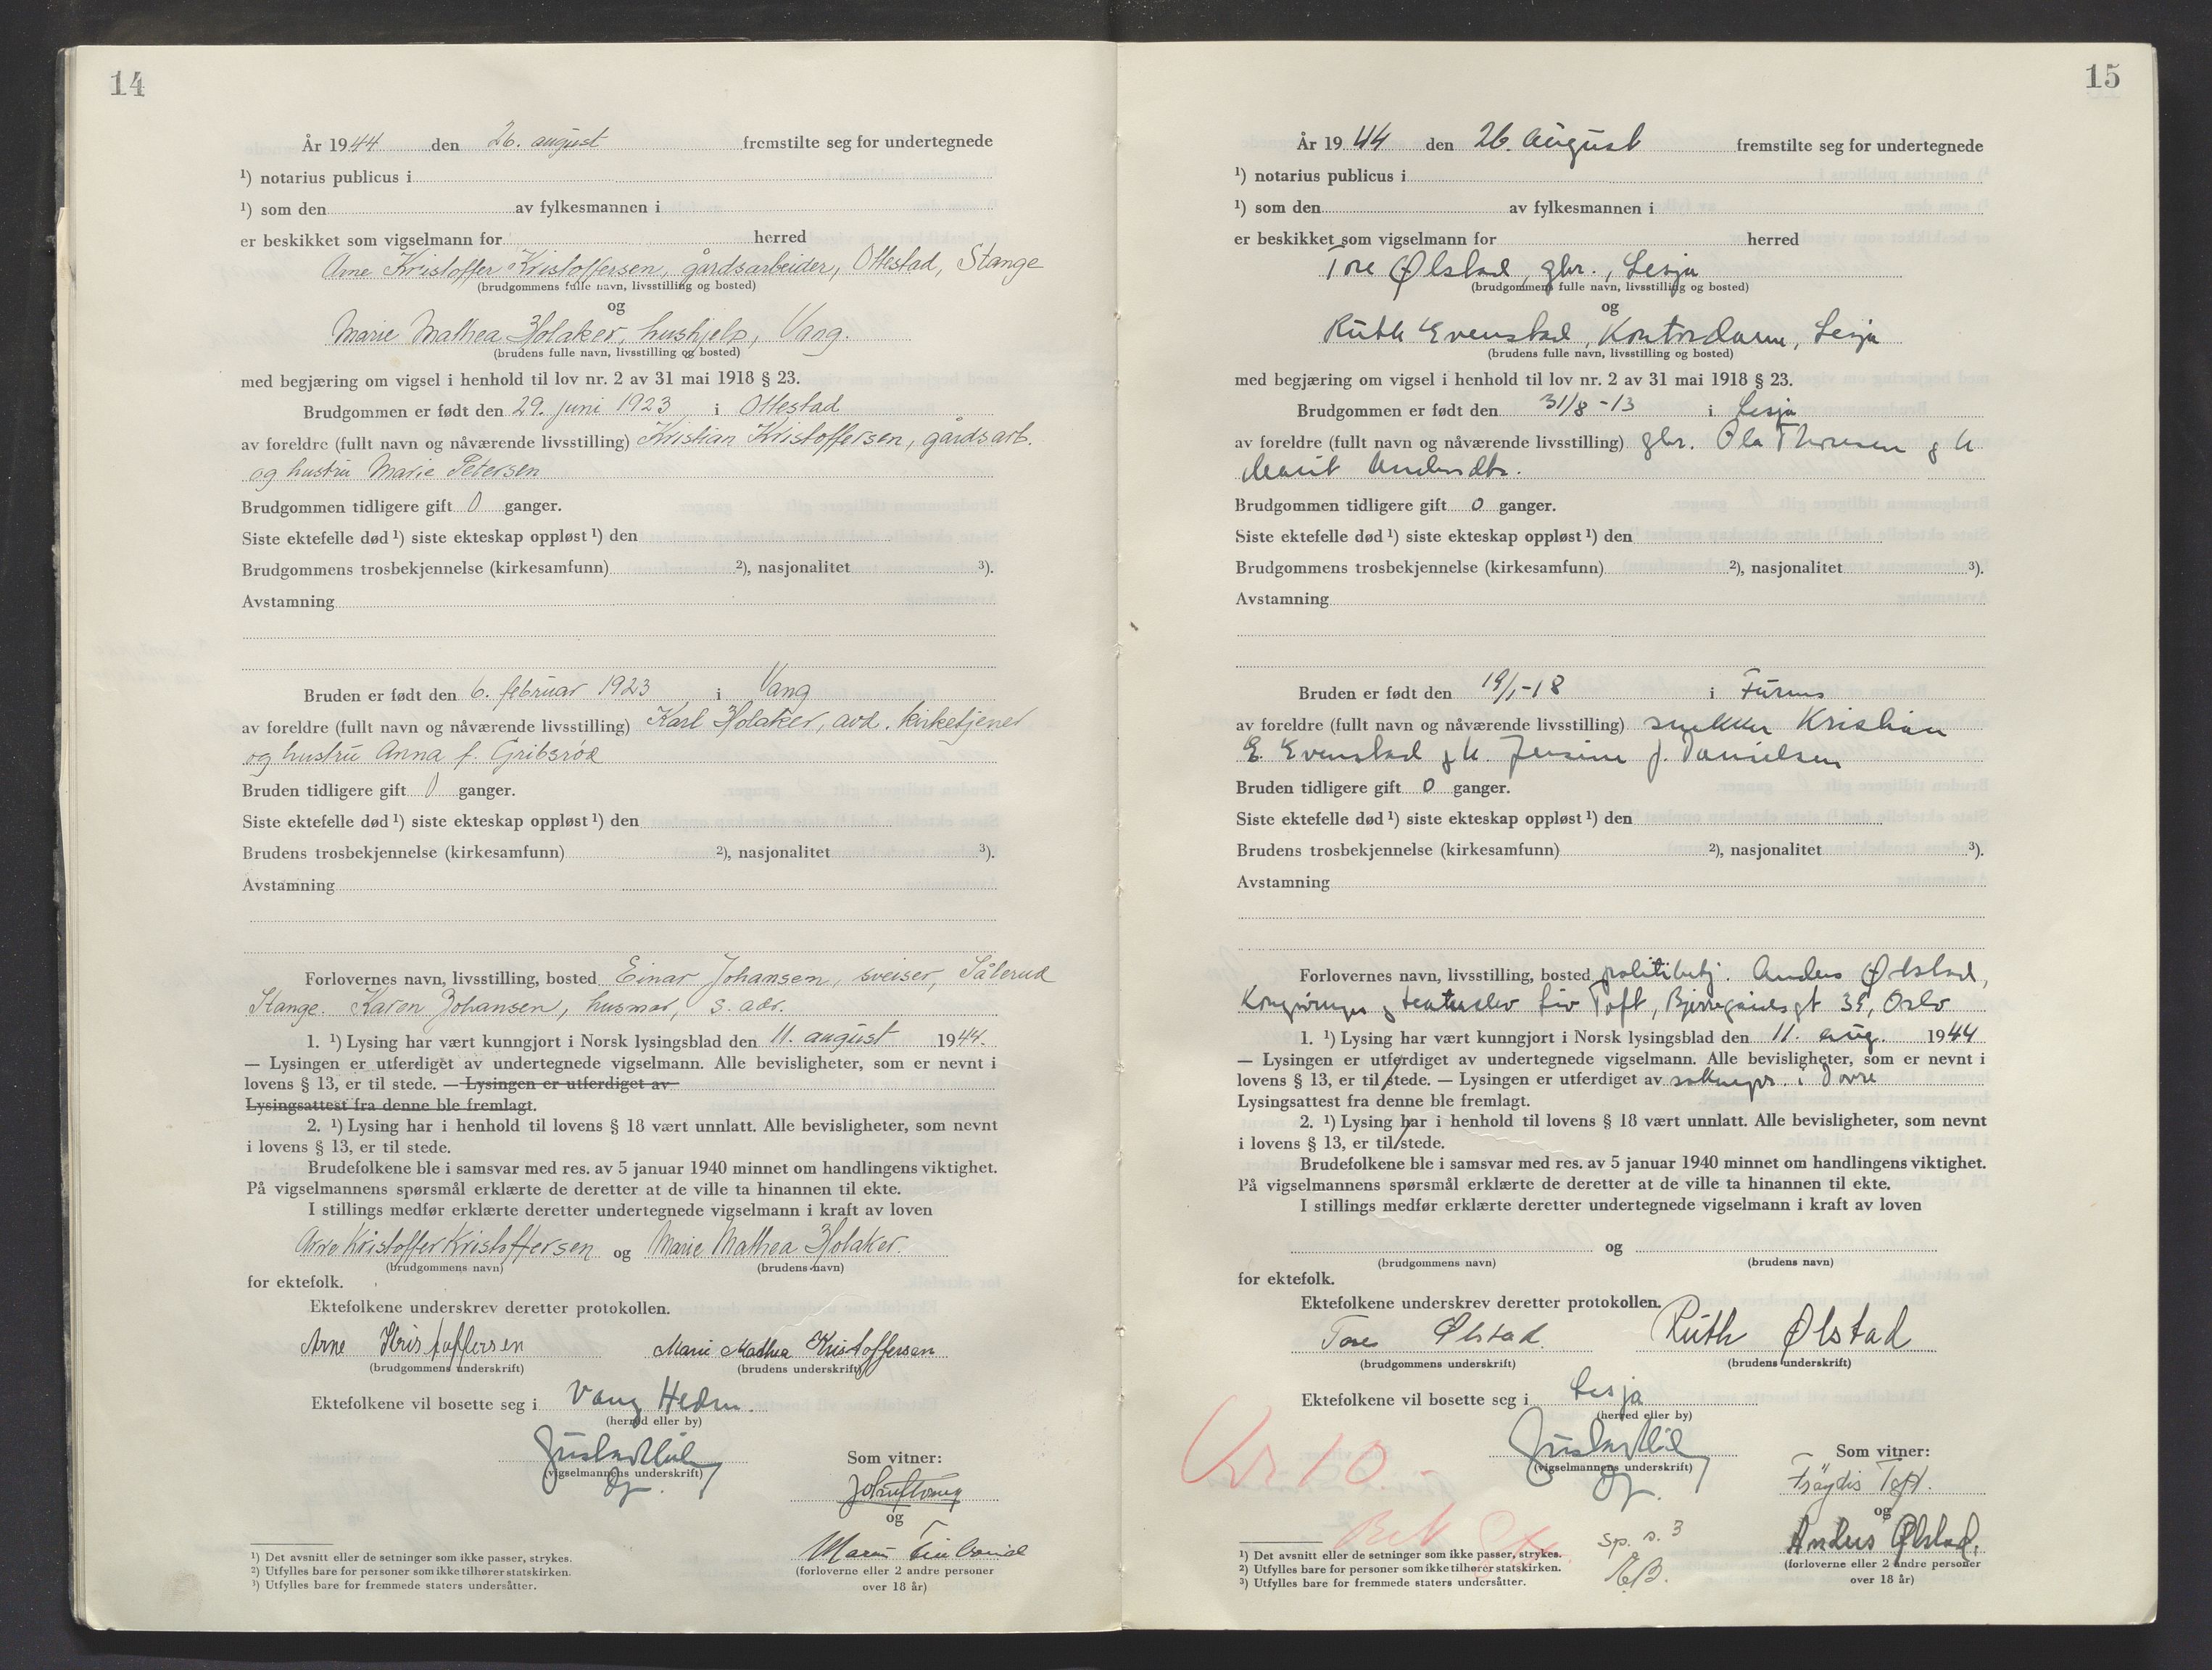 14
År 1944 den 26. august fremstilte seg for undertegnede
¹) notarius publicus i
¹) som den av fylkesmannen i
er beskikket som vigselmann for herred
Arne Kristoffer Kristoffersen, gårdsarbeider, Ottestad, Stange
(brudgommens fulle navn, livsstilling og bosted)
og
Marie Mathea Holaker, hushjelp, Vang.
(brudens fulle navn, livsstilling og bosted)
med begjæring om vigsel i henhold til lov nr. 2 av 31 mai 1918 § 23.
Brudgommen er født den 29. juni 1923 i Ottestad
av foreldre (fullt navn og nåværende livsstilling) Kristian Kristoffersen, gårdsarb.
og hustru Marie Petersen
Brudgommen tidligere gift 0 ganger.
Siste ektefelle død ¹) siste ekteskap oppløst ¹) den
Brudgommens trosbekjennelse (kirkesamfunn) ²), nasjonalitet ³).
Avstamning
Bruden er født den 6. februar 1923 i Vang
av foreldre (fullt navn og nåværende livsstilling) Karl Holaker, avd. kirketjener
og hustru Anna f. Gribsrød
Bruden tidligere gift 0 ganger.
Siste ektefelle død ¹) siste ekteskap oppløst ¹) den
Brudens trosbekjennelse (kirkesamfunn) ²), nasjonalitet ³).
Avstamning
Forlovernes navn, livsstilling, bosted Einar Johansen, sveiser, Sålerud
Stange. Karen Johansen, husmor, s. adr.
1. ¹) Lysing har vært kunngjort i Norsk lysingsblad den 11. august 1944.
— Lysingen er utferdiget av undertegnede vigselmann. Alle bevisligheter, som er nevnt i
lovens § 13, er til stede. — Lysingen er utferdiget av
Lysingsattest fra denne ble fremlagt.
2. ¹) Lysing har i henhold til lovens § 18 vært unnlatt. Alle bevisligheter, som nevnt
i lovens § 13, er til stede.
Brudefolkene ble i samsvar med res. av 5 januar 1940 minnet om handlingens viktighet.
På vigselmannens spørsmål erklærte de deretter at de ville ta hinannen til ekte.
I stillings medfør erklærte deretter undertegnede vigselmann i kraft av loven
Arne Kristoffer Kristoffersen og Marie Mathea Holaker.
(brudgommens navn) (brudens navn)
for ektefolk.
Ektefolkene underskrev deretter protokollen.
Arne Kristoffersen Marie Mathea Kristoffersen
(brudgommens underskrift) (brudens underskrift)
Ektefolkene vil bosette seg i Vang Hedm.
(herred eller by)
(vigselmannens underskrift)
Som vitner:
og
(forloverne eller 2 andre personer
over 18 år)
¹) Det avsnitt eller de setninger som ikke passer, strykes.
²) Utfylles bare for personer som ikke tilhører statskirken.
³) Utfylles bare for fremmede staters undersåtter.
15
År 1944 den 26. August fremstilte seg for undertegnede
¹) notarius publicus i
¹) som den av fylkesmannen i
er beskikket som vigselmann for herred
Tore Ølstad, gbr., Lesja
(brudgommens fulle navn, livsstilling og bosted)
og
Ruth Evenstad, Kontordame, Lesja
(brudens fulle navn, livsstilling og bosted)
med begjæring om vigsel i henhold til lov nr. 2 av 31 mai 1918 § 23.
Brudgommen er født den 31/8-13 i Lesja
av foreldre (fullt navn og nåværende livsstilling) gbr. Ola Thoresen g h
Marit Andersdtr.
Brudgommen tidligere gift 0 ganger.
Siste ektefelle død ¹) siste ekteskap oppløst ¹) den
Brudgommens trosbekjennelse (kirkesamfunn) ²), nasjonalitet ³).
Avstamning
Bruden er født den 19/1-18 i Furnes
av foreldre (fullt navn og nåværende livsstilling) snekker Kristian
E. Evenstad g h. Jensine f. Danielsen
Bruden tidligere gift 0 ganger.
Siste ektefelle død ¹) siste ekteskap oppløst ¹) den
Brudens trosbekjennelse (kirkesamfunn) ²), nasjonalitet ³).
Avstamning
Forlovernes navn, livsstilling, bosted politibetj. Anders Ølstad,
Kongsvinger g teaterelev Liv Toft, Bjerregaardsgt 39, Oslo
1. ¹) Lysing har vært kunngjort i Norsk lysingsblad den 11. aug. 1944
— Lysingen er utferdiget av undertegnede vigselmann. Alle bevisligheter, som er nevnt i
lovens § 13, er til stede. — Lysingen er utferdiget av soknepr. i Dovre
Lysingsattest fra denne ble fremlagt.
2. ¹) Lysing har i henhold til lovens § 18 vært unnlatt. Alle bevisligheter, som nevnt
i lovens § 13, er til stede.
Brudefolkene ble i samsvar med res. av 5 januar 1940 minnet om handlingens viktighet.
På vigselmannens spørsmål erklærte de deretter at de ville ta hinannen til ekte.
I stillings medfør erklærte deretter undertegnede vigselmann i kraft av loven
og
(brudgommens navn) (brudens navn)
for ektefolk.
Ektefolkene underskrev deretter protokollen.
Tore Ølstad. Ruth Ølstad
(brudgommens underskrift) (brudens underskrift)
Ektefolkene vil bosette seg i Lesja
(herred eller by)
Kr 10.-
(vigselmannens underskrift)
Som vitner:
Frøydis Toft.
og
Anders Ølstad.
(forloverne eller 2 andre personer
over 18 år)
Bet
Sp. s. 3
¹) Det avsnitt eller de setninger som ikke passer, strykes.
²) Utfylles bare for personer som ikke tilhører statskirken.
³) Utfylles bare for fremmede staters undersåtter.